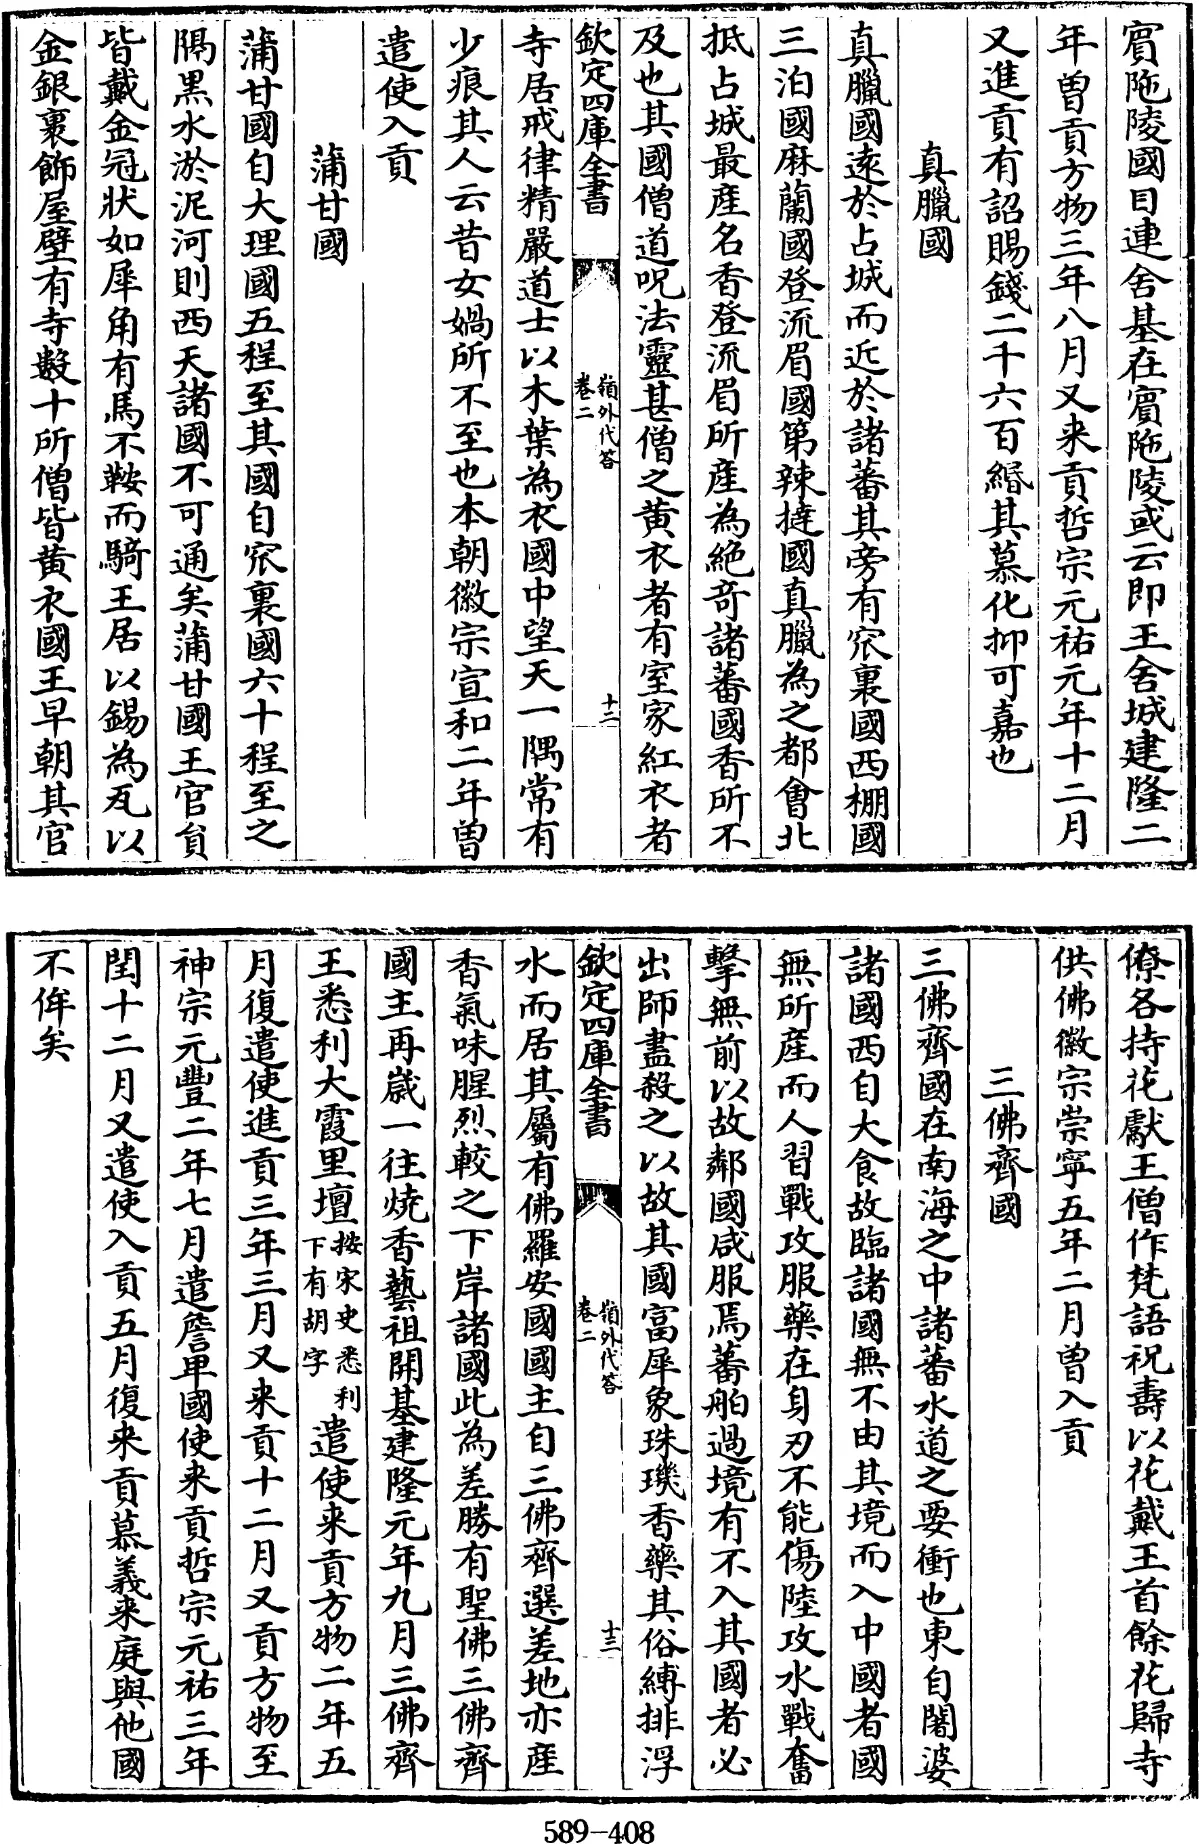 賓陁陵國目連舍基在賓陁陵或云即王舍城建隆二
年曽貢方物三年八月又来貢哲宗元祐元年十二月
又進貢有詔賜錢二千六百緡其慕化抑可嘉也
真臘國
真臘國逺於占城而近於諸蕃其旁有窊裏國西棚國
三泊國麻蘭國登流眉國第辣撻國真臘為之都㑹北
抵占城最産名香登流眉所産為絶竒諸蕃國香所不
及也其國僧道呪法靈甚僧之黄衣者有室家紅衣者
欽定四庫全書
嶺外代答
卷二
十二
寺居戒律精嚴道士以木葉為衣國中望天一隅常有
少痕其人云昔女媧所不至也本朝徽宗宣和二年曽
遣使入貢
蒲甘國
蒲甘國自大理國五程至其國自窊裏國六十程至之
隔黒水淤泥河則西天諸國不可通矣蒲甘國王官貟
皆戴金冠狀如犀角有馬不鞍而騎王居以錫為瓦以
金銀裹飾屋壁有寺數十所僧皆黄衣國王早朝其官
僚各持花獻王僧作梵語祝壽以花戴王首餘花歸寺
供佛徽宗崇寧五年二月曽入貢
三佛齊國
三佛齊國在南海之中諸蕃水道之要衝也東自闍婆
諸國西自大食故臨諸國無不由其境而入中國者國
無所産而人習戰攻服藥在身刃不能傷陸攻水戰奮
擊無前以故鄰國咸服焉蕃舶過境有不入其國者必
出師盡殺之以故其國富犀象珠璣香藥其俗縛排浮
欽定四庫全書
嶺外代答
卷二
十三
水而居其屬有佛羅安國國主自三佛齊選差地亦産
香氣味腥烈較之下岸諸國此為差勝有聖佛三佛齊
國主再歳一往燒香藝祖開基建隆元年九月三佛齊
王悉利大霞里壇按宋史悉利下有胡字遣使来貢方物二年五
月復遣使進貢三年三月又来貢十二月又貢方物至
神宗元豐二年七月遣詹卑國使来貢哲宗元祐三年
閏十二月又遣使入貢五月復来貢慕義来庭與他國
不侔矣
589-408